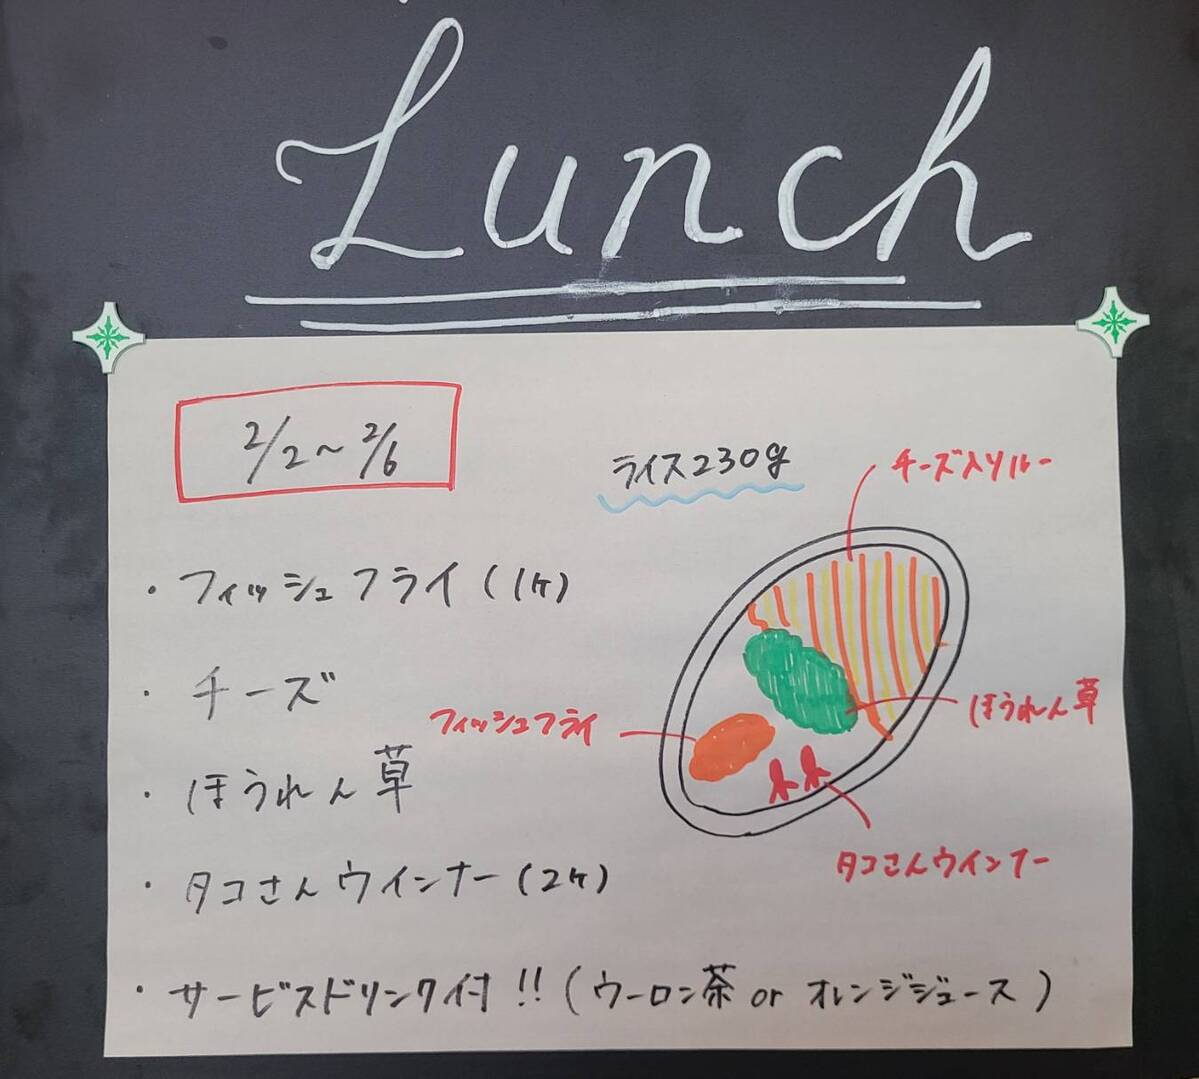 Lunch
2/2～2/6
ライス230g
チーズ入りルー
・フィッシュフライ(1ヶ)
・チーズ
フィッシュフライ
ほうれん草
・ほうれん草
タコさんウインナー
・タコさんウインナー(2ヶ)
・サービスドリンク付!!(ウーロン茶orオレンジジュース)